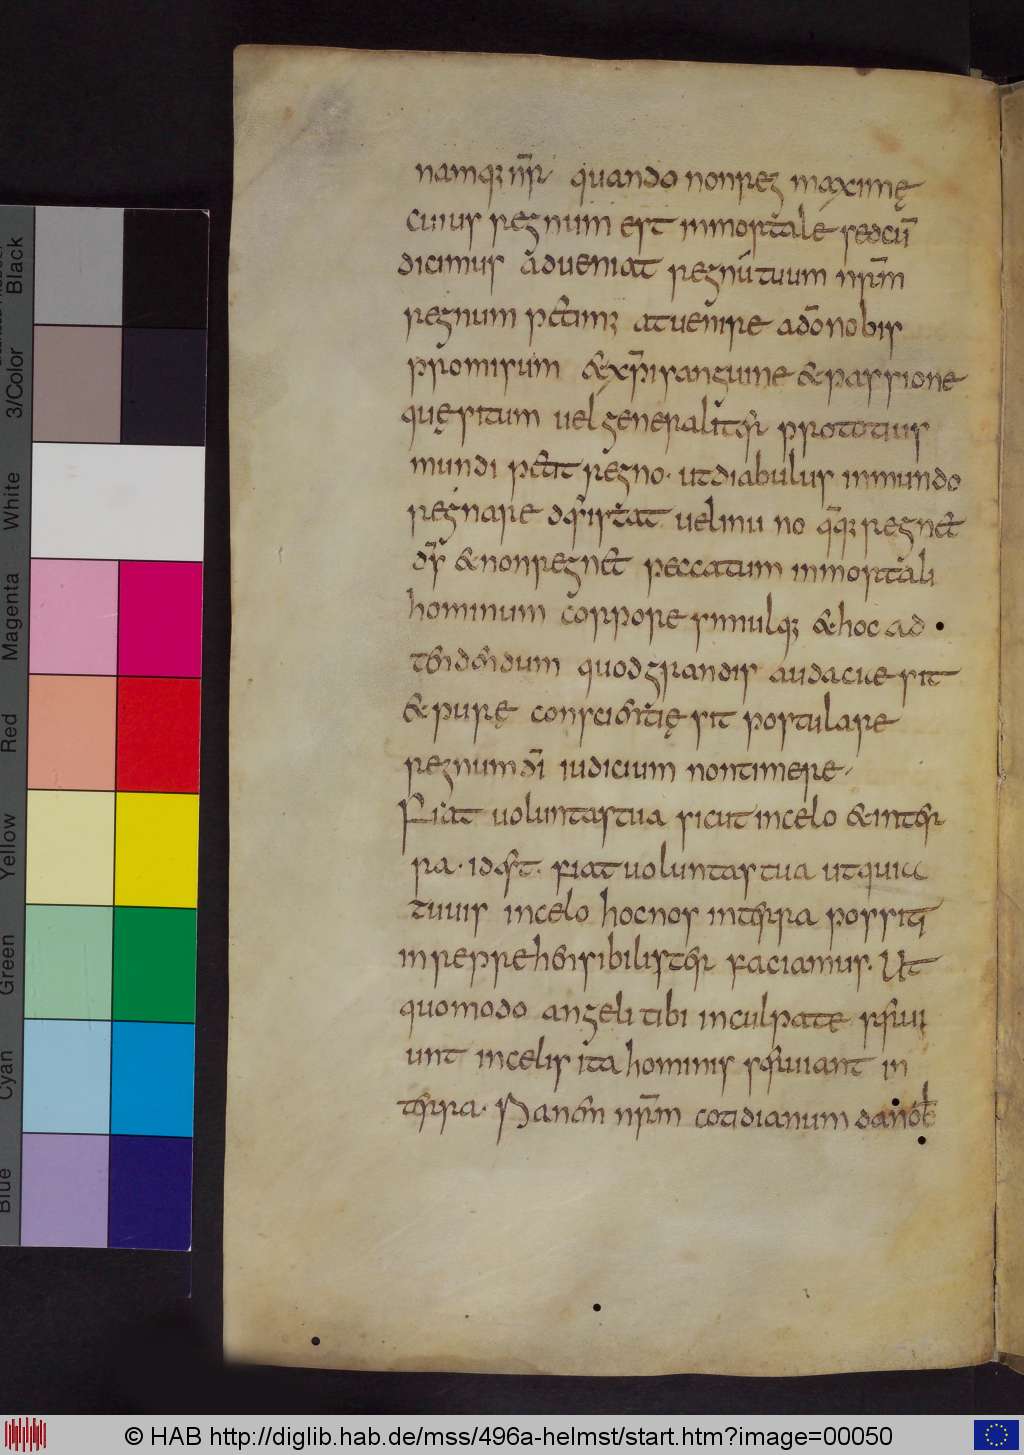 namq; nr̄ quando non reg maximę
cuius regnum est inmortale sed cū
dicimus adueniat regnū tuum nr̄m
regnum petim; at uenire a dō nobis
promisum & xp̄i sanguine & passione
quęsitum uel generaliter pro totius
mundi petit regno· ut diabulus in mundo
regnare desistat uel in un no q̄q; regnet
ds̄ & non regnet peccatum in mortali
hominum corpore simulq; & hoc ad
tendendum quod grandis audacie sit
& purę conscientię sit postulare
regnum dī iudicium non timere·
Fiat uoluntas tua sicut in celo & in ter
ra· id est· fiat uoluntas tua ut qui
tuus in celo hoc nos in terra positi
inreprehensibilister faciamus· Ut
quomodo angeli tibi inculpate serui
unt in celis ita hominis seruiant in
terra· Panem nr̄m cotidianum da nob̄
Black
3/Color
White
Magenta
Red
Yellow
Green
Cyan
Blue
© HAB http://diglib.hab.de/mss/496a-helmst/start.htm?image=00050